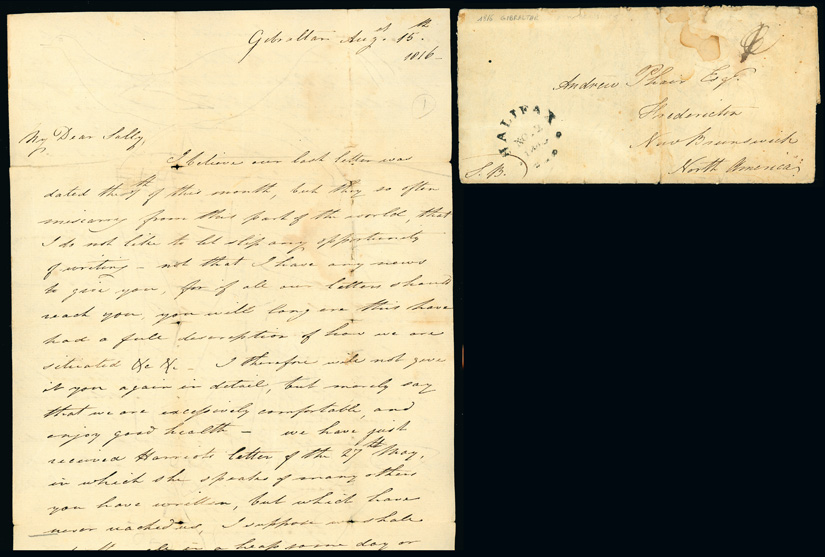 Gibraltar Augst 15th
1816 -
1
My Dear Sally,
I believe our last letter was
dated the 7th of this month, but they so often
miscarry from this part of the world, that
I do not like to let slip any opportunity
of writing - not that I have any news
to give you, for if all our letters should
reach you, you will long ere this have
had a full description of how we are
situated &c &c - I therefore will not give
it you again in detail, but merely say
that we are excessively comfortable, and
enjoy good health - we have just
received Harriets letter of the 27th May,
in which she speaks of many others
you have written, but which have
never reached us, I suppose we shall
in a heap some day or
1816 GIBRALTAR
Andrew Phair Esqr.
Fredericton
New Brunswick
North America
HALIFAX
NO. 2
S.B.